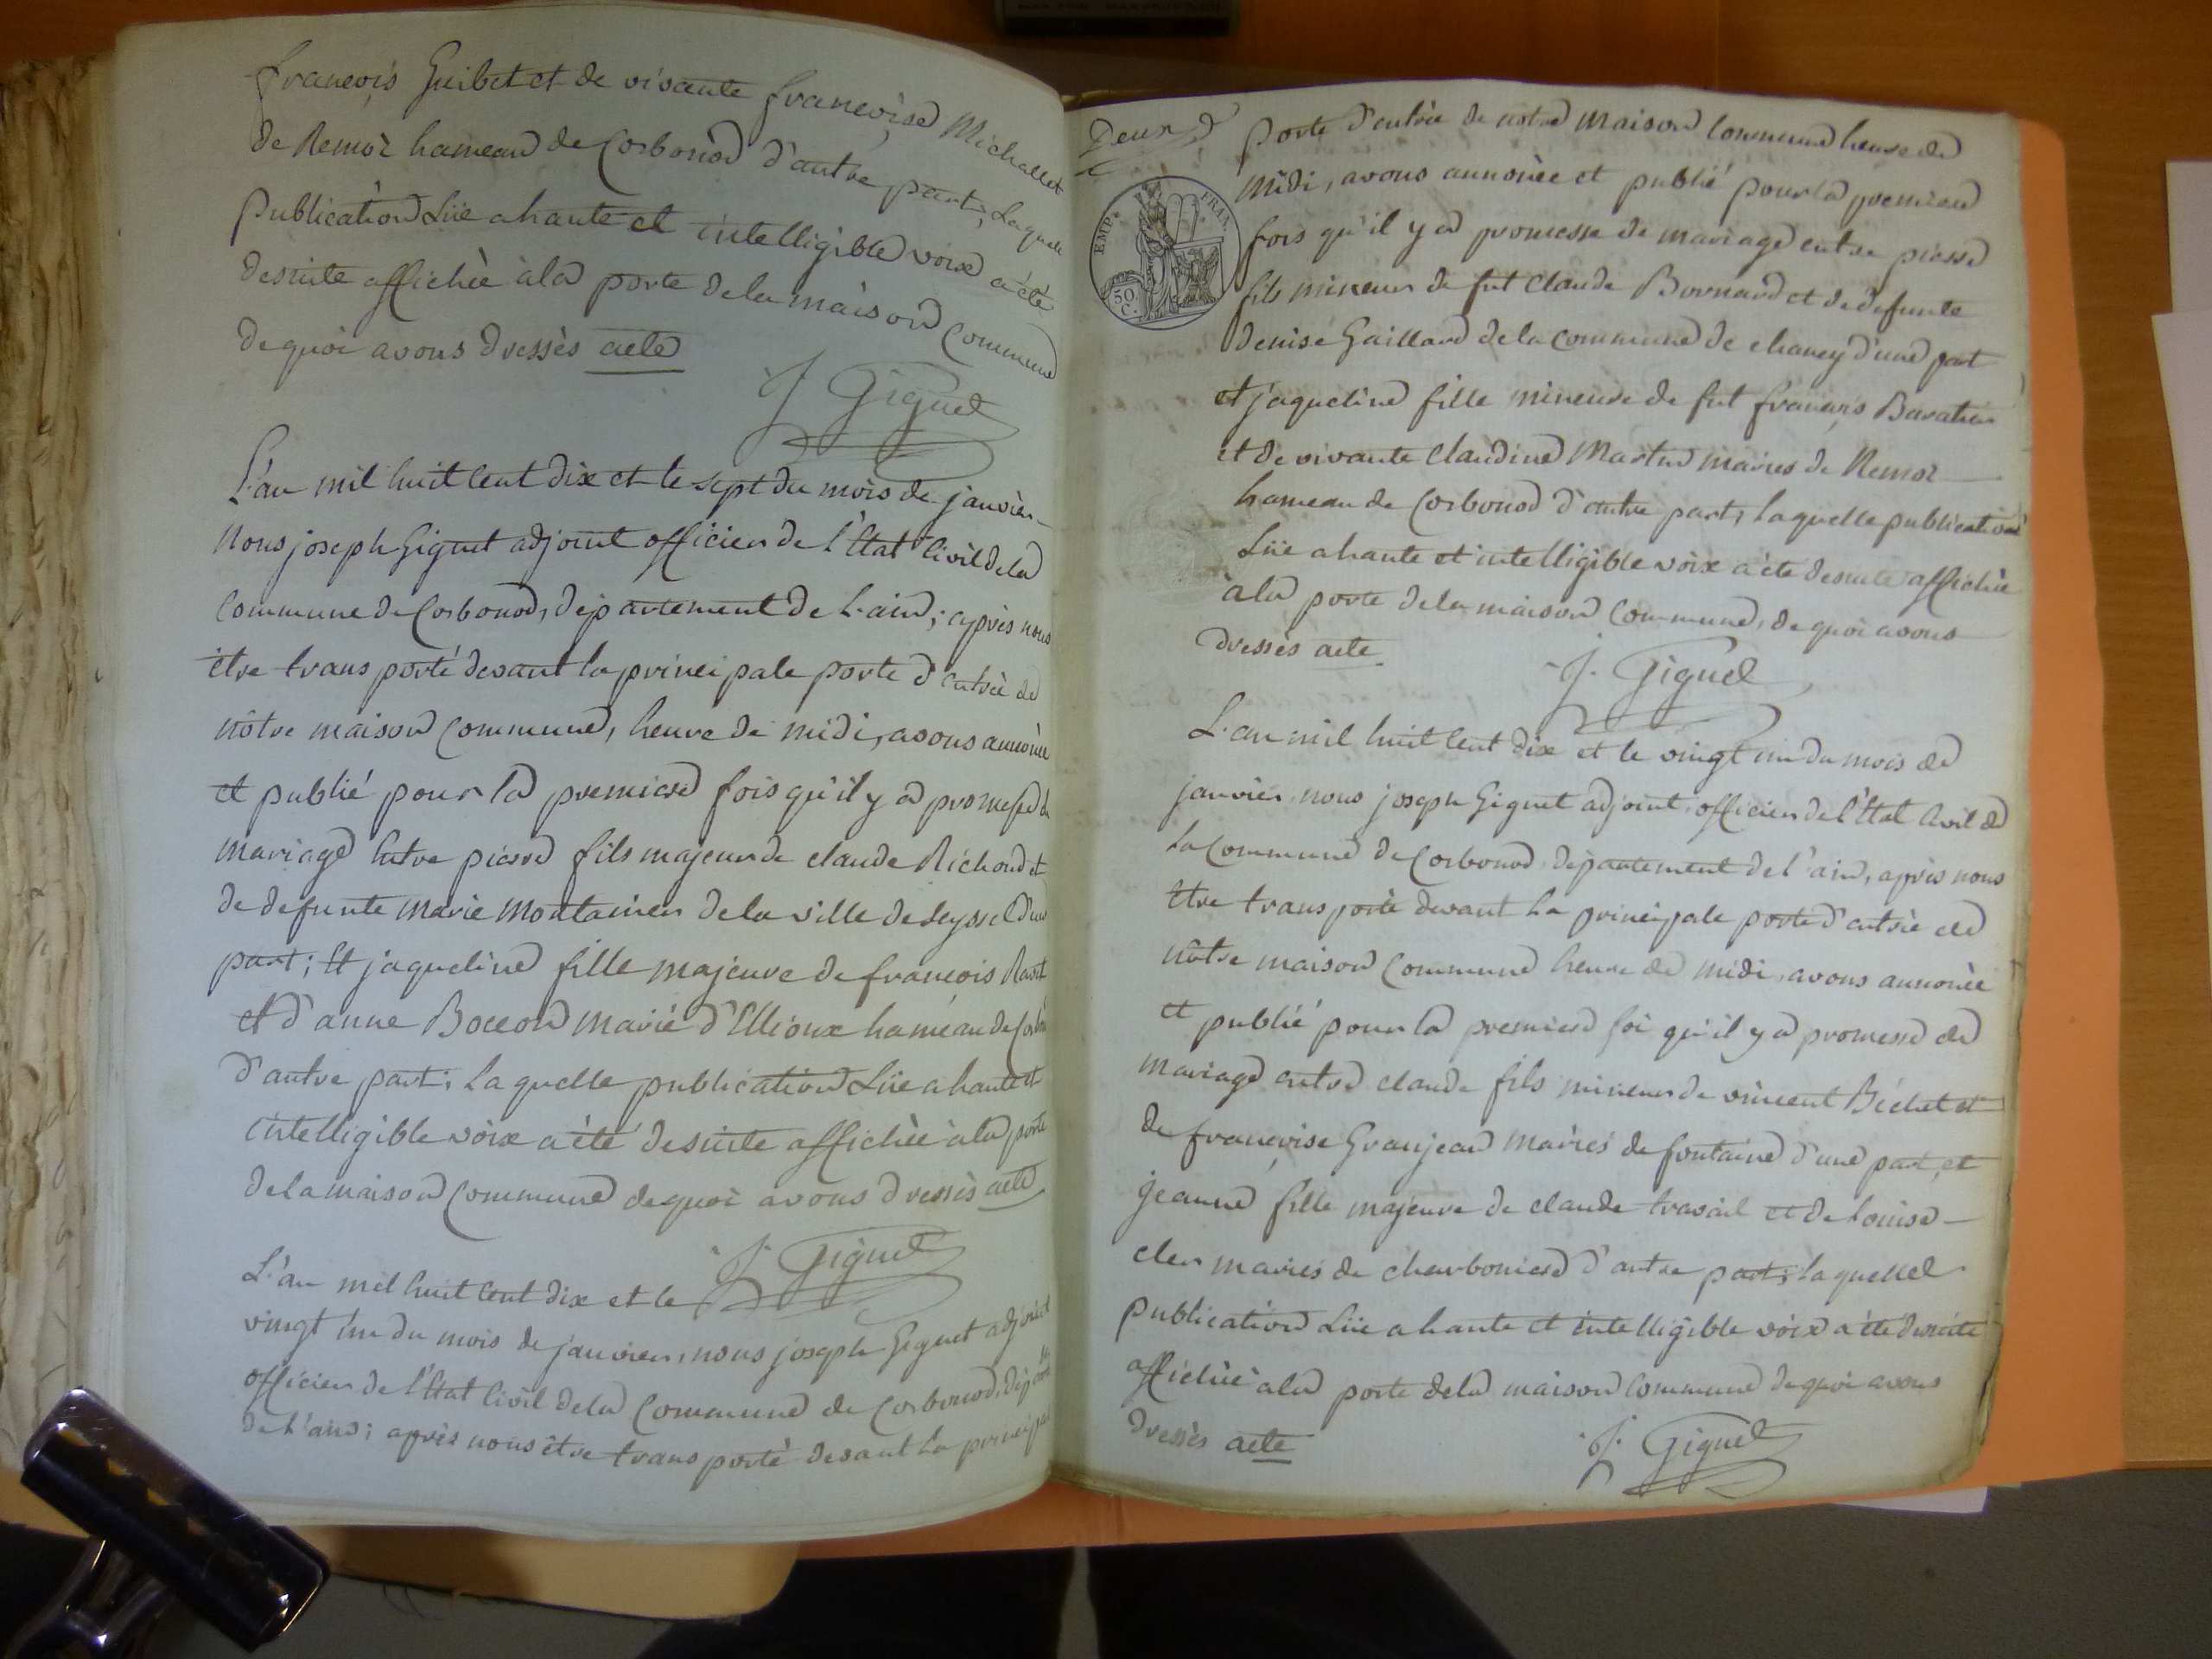 françois Guibet et de vivante françoise Michallet
de Remoz hameau de Corbonod d'autre part; Laquelle
publication Lüe a haute et intelligible voix a été
desuite affichée à la porte de la maison Commune
de quoi avons dressés acte
J Giguet
L'an mil huit Cent dix et le sept du mois de janvier
Nous joseph Giguet adjoint officier de l'Etat Civil de la
Commune de Corbonod, département de L'ain; après nous
être transporté devant la principale porte d'entrée de
nôtre maison Commune, heure de midi, avons annoncée
et publié pour la premiere fois qu'il y a promesse de
mariage Entre pierre fils majeur de claude Richond et
de defunte marie Montanier de la ville de Seyssel d'une
part; Et jaqueline fille majeure de françois Ravet
et d'anne Boccon marié d'Ellioux hameau de
d'autre part; La quelle publication Lüe a haute et
intelligible voix a été desuite affichée à la porte
de la maison Commune de quoi avons dressés acte
J. Giguet
L'an mil huit Cent dix et le
vingt un du mois de janvier, nous joseph Giguet adjoint
officier de l'Etat Civil de la Commune de Corbonod,
de l'ain; après nous être transporté devant la principale
Deux
EMP. FRAN.
50 C.
porte d'entrée de notre maison Commune heure de
midi, avons annoncée et publié pour la premiere
fois qu'il y a promesse de mariage entre pierre
fils mineur de fut Claude Bornard et de defunte
denise Gaillard de la Commune de chaney d'une part
et jaqueline fille mineure de fut françois Baratier
et de vivante Claudine Martin mariés de Remoz
hameau de Corbonod d'autre part; laquelle publication
Lüe a haute et intelligible voix a été desuite affichée
à la porte de la maison Commune, de quoi avons
dressés acte
J. Giguet
L'an mil huit Cent dix et le vingt un du mois de
janvier, nous joseph Giguet adjoint, officier de l'Etat Civil de
La Commune de Corbonod, département de l'ain, après nous
être transporté devant La principale porte d'entrée de
nôtre maison Commune heure de midi, avons annoncée
et publié pour la premiere foi qu'il y a promesse de
mariage entre claude fils mineur de vincent Béchet et
de françoise Granjean mariés de fontaine d'une part, et
jeanne fille majeure de claude travail et de Louise
cler mariés de charboniere d'autre part; laquelle
publication Lüe a haute et intelligible voix a été desuite
affichée à la porte de la maison Commune de quoi avons
dressés acte
J. Giguet